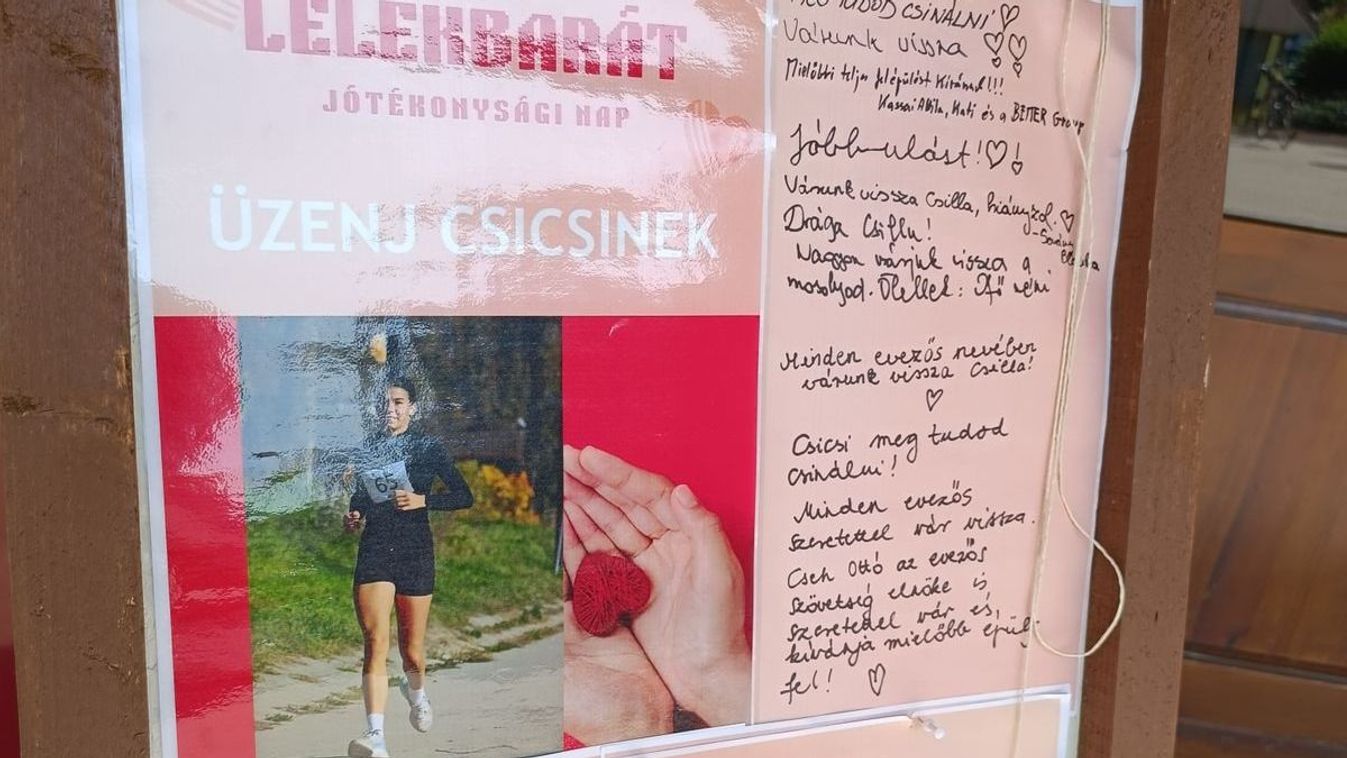 LÉLEKBARÁT
JÓTÉKONYSÁGI NAP
ÜZENJ CSICSINEK
65
TUDOD CSINÁLNI
Várunk vissza
Mielőbbi teljes felépülést Kívánunk!!!
Kassai Attila, Kati és a BETTER Group
Jóbb-ulást!!
Várunk vissza Csilla, hiányzol.
Drága Csillu!
Nagyon várjuk vissza a
mosolyod. Ölellek: néni
Minden evezős nevében
várunk vissza Csilla!
Csicsi meg tudod
csinálni!
Minden evezős
szeretettel vár vissza.
Cseh Ottó az evezős
szövetség elnöke is
szeretettel vár és,
kívánja mielőbb épülj
fel!